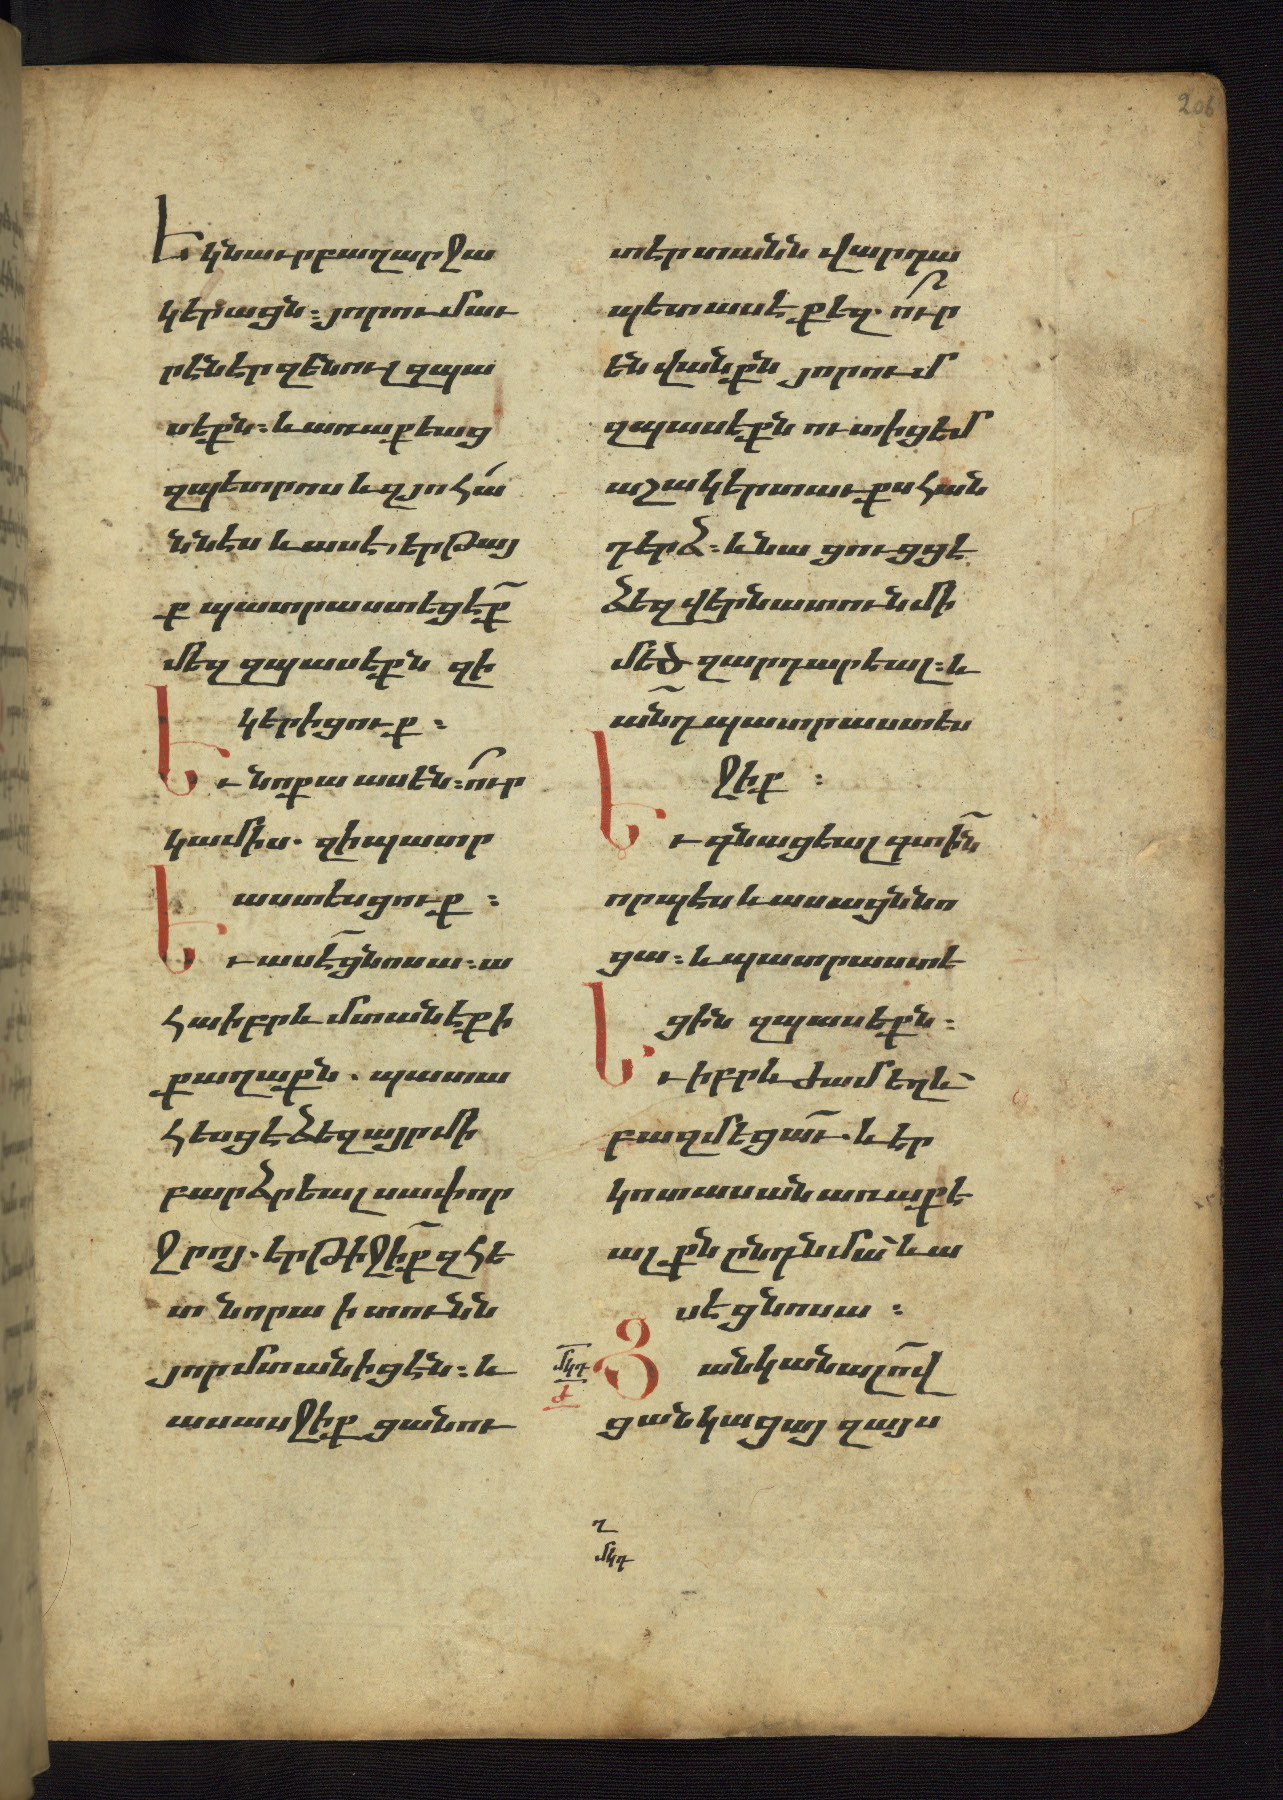 206
Եկն աւր բաղարջա
կերացն։ յորում աւ
րէն էր զենուլ զպա
սեքն։ և առաքեաց
զպետրոս և զյոհա՛
ննէս և ասէ, երթայ
ք պատրաստեցէ՜ք
մեզ զպասեքն զի
կերիցուք։
Եւ նոքա ասեն։ ո՛ւր
կամիս. զի պատր
աստեսցուք։
Եւ ասէ ցնոսա։ ա
հա իբրև մտանէք ի
քաղաքն. պատա
հեսցէ ձեզ այր մի
բարձրեալ սափոր
ջրոյ. երթիջի՜ք զհե
տ նորա ի տունն
յոր մտանիցէն։ և
ասասջիք ցտանու
տէր տանն վարդա
պետ ասէ քեզ. ո՛ւր
են վանքն յորում
զպասեքն ուտիցեմ
աշակերտաւքս հան
դերձ։ և նա ցուցցէ
ձեզ վերնատուն մի
մեծ զարդարեալ։ և
ա՜նդ պատրաստես
ջիք։
Եւ գնացեալ գտի՜ն
որպէս և ասաց ննո
ցա։ և պատրաստե
ցին զպասեքն։
Եւ իբրև ժամ եղև՜
բազմեցա՜ւ. և եր
կոտասան առաքե
ալքն ընդ նմա՜ և ա
սէ ցնոսա։
մկդ
ժ
Ցանկանալո՜վ
ցանկացայ զայս
ղ
մկդ